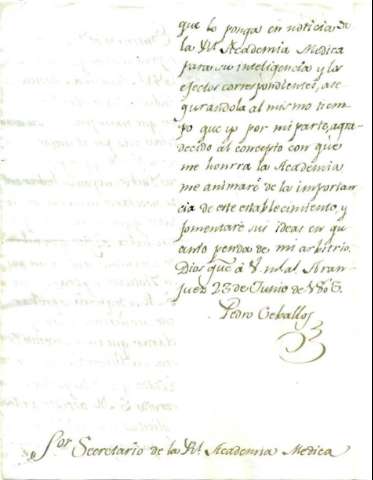 que lo ponga en noticia de
la Rl. Academia Medica
para su inteligencia y los
efectos correspondientes, ase
gurandola al mismo tiem
po que yo por mi parte, agra
decido al concepto con que
me honrra la Academia
me animaré de la importan
cia de este establecimiento, y
fomentaré sus ideas en qu
anto penda de mi arbitrio.
Dios gue. á V. m.s a.s Aran
juez 23 de Junio de 1806.
Pedro Ceballos
Sor. Secretario de la Rl. Academia Medica